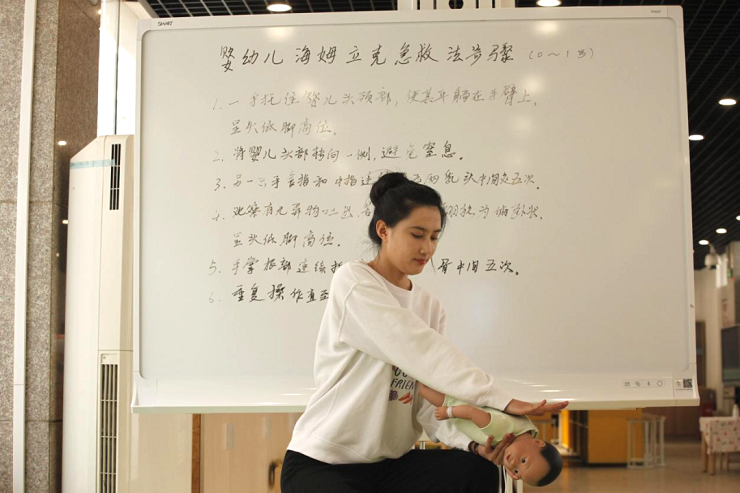 SMART
婴幼儿海姆立克急救法步骤 (0～1岁)
1. 一手托住婴儿头颈部，使其平躺在手臂上，
呈头低脚高位。
2. 将婴儿头部转向一侧，避免窒息。
3. 另一只手食指和中指连续 两乳头中间五次。
4. 观察有无异物吐出，若 翻转为俯卧状，
呈头低脚高位。
5. 手掌根部连续 骨中间五次。
6. 重复操作直至
FRIEND